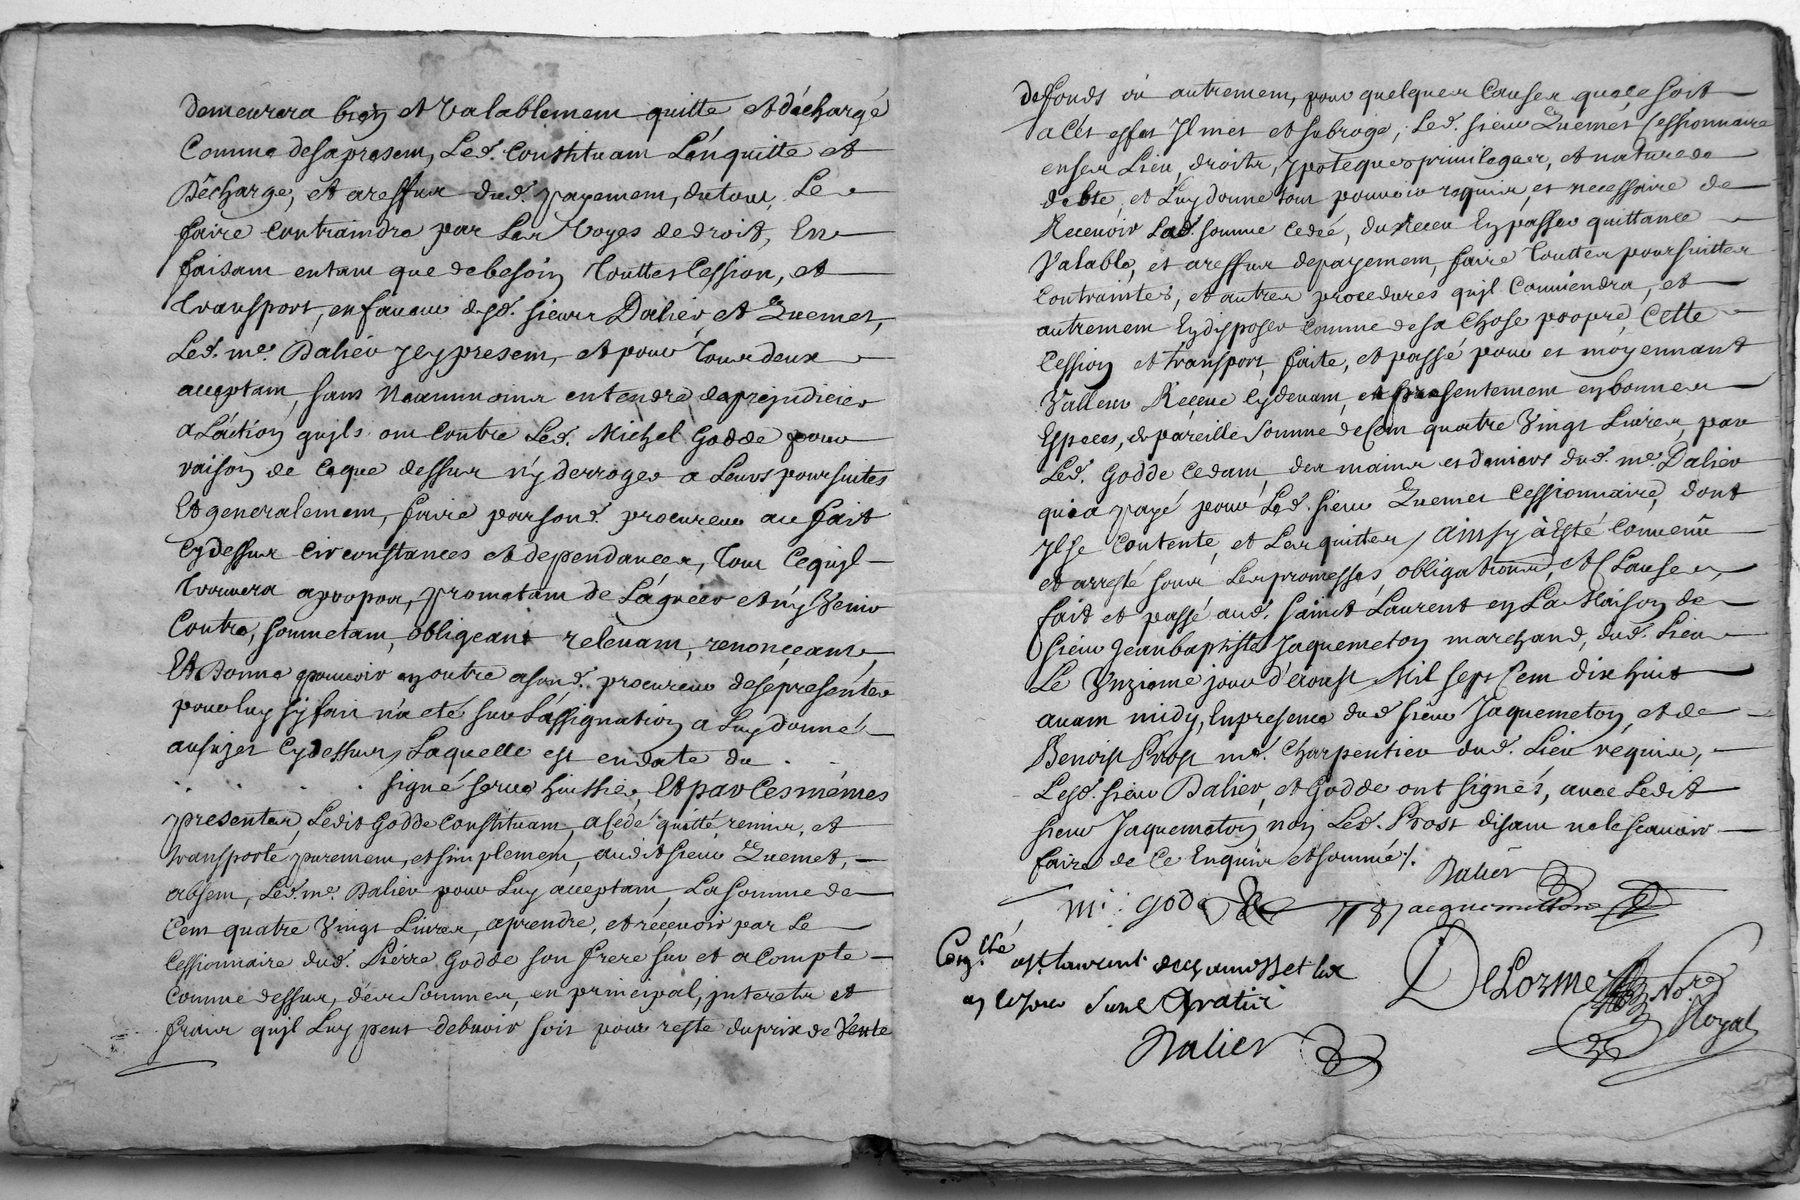 demeurera bien et valablement quitte et déchargé
Comme desapresent, Led. Constituant L'enquitte et
Décharge, et areffus dud. payement, dutout, Le
faire Contraindre par Les voyes dedroit, En
faisant entant que debesoin touttes Cession, et
transport, enfaveur desd. sieurs Dalier et Quemet,
Led. me. Dalier Jcy present, et pour tous deux
acceptant, sans Neammoins entendre deprejudicier
a L'action quils ont Contre Led. Michel Godde pour
raison de Ceque dessus n'y derroger a Leurs poursuites
Et generalement, faire parsond. procureur au fait
Cydessus Circonstances et dependances, tout Cequil
trouvera apropos, prometant de L'agréer et n'y Venir
Contre, soumetant, obligeant relevant, renonçeant,
Et Donne pouvoir en outre asond. procureur desepresenter
pour luy sy fait n'a eté sur L'assignation a Luy donné
ausujet Cydessus, Laquelle est endate du
signé serve huissier, Et par Ces mémes
presentes, Ledit Godde Constituant, a Cedé quitté, remis, et
transporté purement, et simplement, audit sieur Quemet,
absent, Led. me. Dalier pour Luy acceptant, La somme de
Cent quatre Vingt Livres, aprendre, et réçevoir par Le
Cessionnaire dud. Pierre Godde son frere sur et a compte
Comme dessus, des sommes, en principal, jnterets et
fraix quil Luy peut debvoir soit pour reste duprix de Vente
defonds ou autrement, pour quelques Causes que ce soit
a Cét effet Jl met et subroge, Led. sieur Quemet Cessionnaire
enses Lieu, droits, ypoteques privileges, et nature de
debte, et Luy donne tout pouvoir requis, et necessaire de
Recevoir Lad. somme cedée, du Receu En passer quittance
Valable, et areffus depayement, faire toutter poursuittes
Contraintes, et autres procedures quil Conviendra, et
autrement En disposer Comme desa Chose propre, Cette
Cession et transport, faite, et passé pour et moyennant
Valleur Reçeue Cydevant, et presentement en bonnes
Especes, de pareille somme de Cent quatre Vingt Livres, par
Led. Godde Cedant, des mains et deniers dud. me. Dalier
qui a payé pour Led. sieur Quemet Cessionnaire, dont
Jl se Contente, et Les quitte, ainsy à Esté Convenû
et arresté sous Les promesses, obligations, et Clauses,
fait et passé aud. sainct Laurent en La Maison de
sieur Jeanbaptiste Jaquemeton marchand, dud. Lieu
Le Unzieme jour d'éaoust Mil sept Cent dix huit
avant midy, Enpresence dud sieur Jaquemeton, et de
Benoist Prost me. Charpentier dud. Lieu réquis,
Lesd. sieur Dalier, et Godde ont signés, avec Ledit
sieur Jaquemeton non Led. Prost disant ne le sçavoir
faire de Ce Enquis et sommé ./.
Dalier
mi : gode Jacquemetton
Conllé a st. laurent
Dalier
DeLorme Nore
Royal